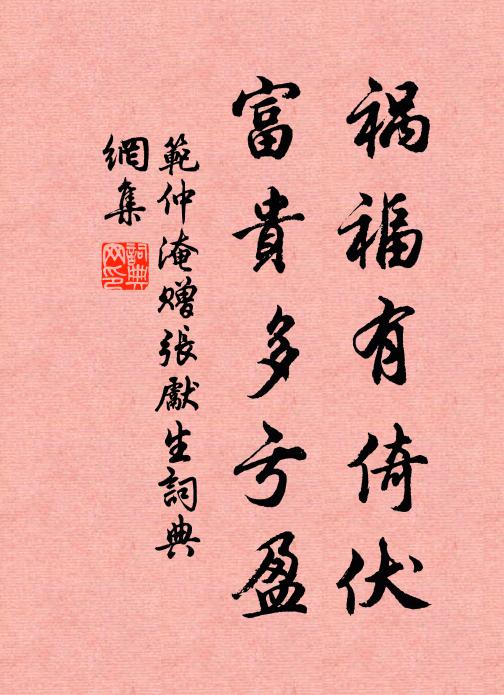 祸福有倚伏
富貴多亏盈
範仲淹赠張獻生詞典
網集
詞典
网印